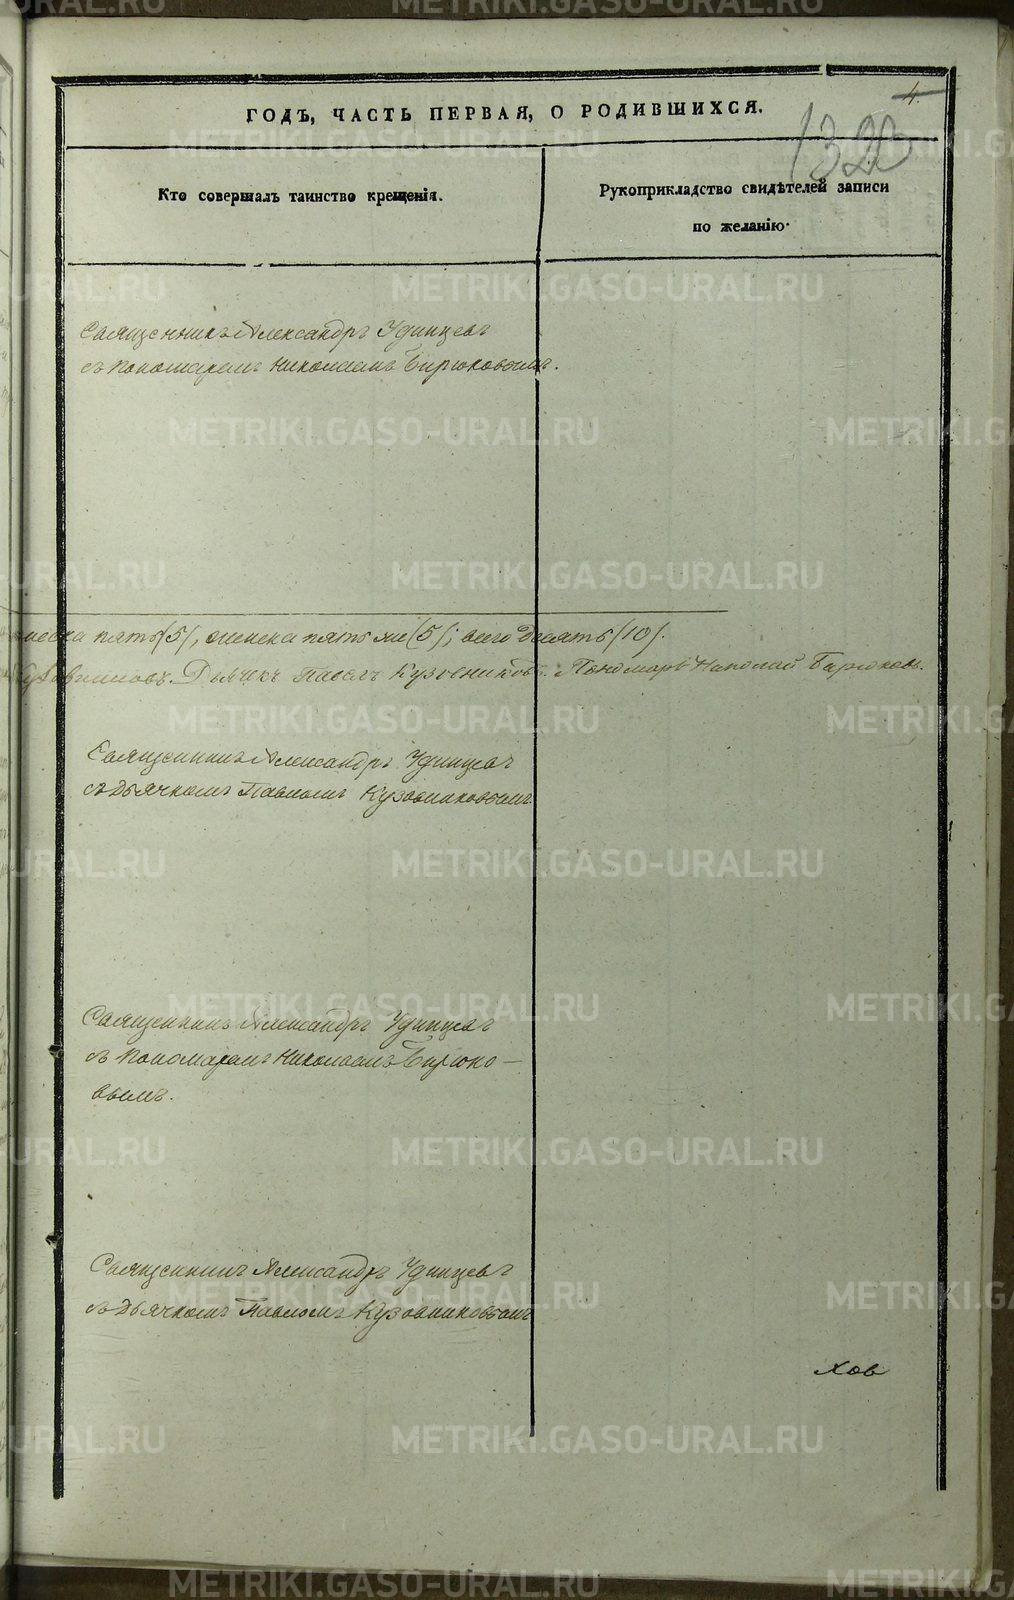 4.
ГОДЪ, ЧАСТЬ ПЕРВАЯ, О РОДИВШИХСЯ.
132
Кто совершалъ таинство крещенія.
Рукоприкладство свидѣтелей записи
по желанію.
Священникъ Александръ Удинцевъ
съ пономаремъ Николаемъ Бирюковымъ.
пола пять (5), женска пять же (5); всего десять (10).
Дьячекъ Павелъ Кузовниковъ. Пономарь Николай Бирюковъ.
Священникъ Александръ Удинцевъ
съ дьячкомъ Павломъ Кузовниковымъ
Священникъ Александръ Удинцевъ
съ пономаремъ Николаемъ Бирюко-
вымъ.
Священникъ Александръ Удинцевъ
съ дьячкомъ Павломъ Кузовниковымъ
хов
METRIKI.GASO-URAL.RU